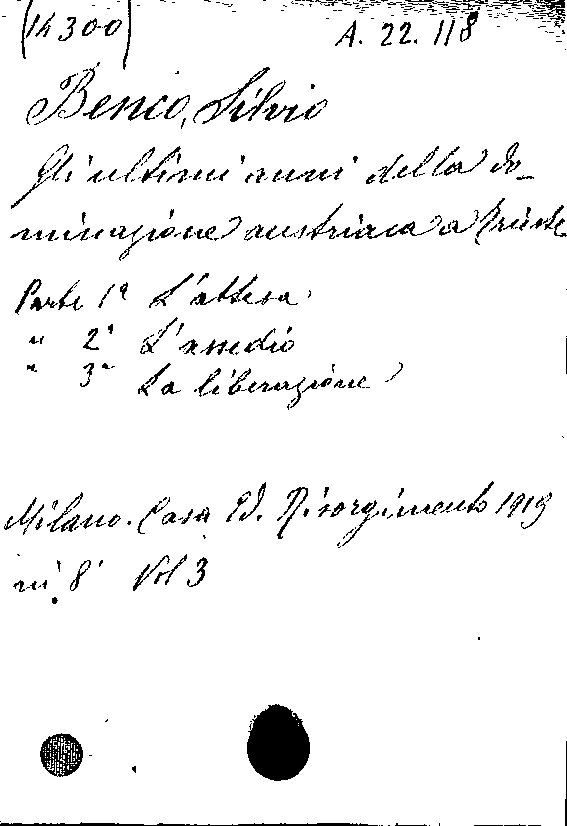 (14300) A. 22. 118
Benco, Silvio
Gli ultimi anni della do_
minazione austriaca a Trieste
Parte 1ª L'attesa
" 2ª L'assedio
" 3ª La liberazione
Milano. Casa Ed. Risorgimento 1919
in 8° Vol 3